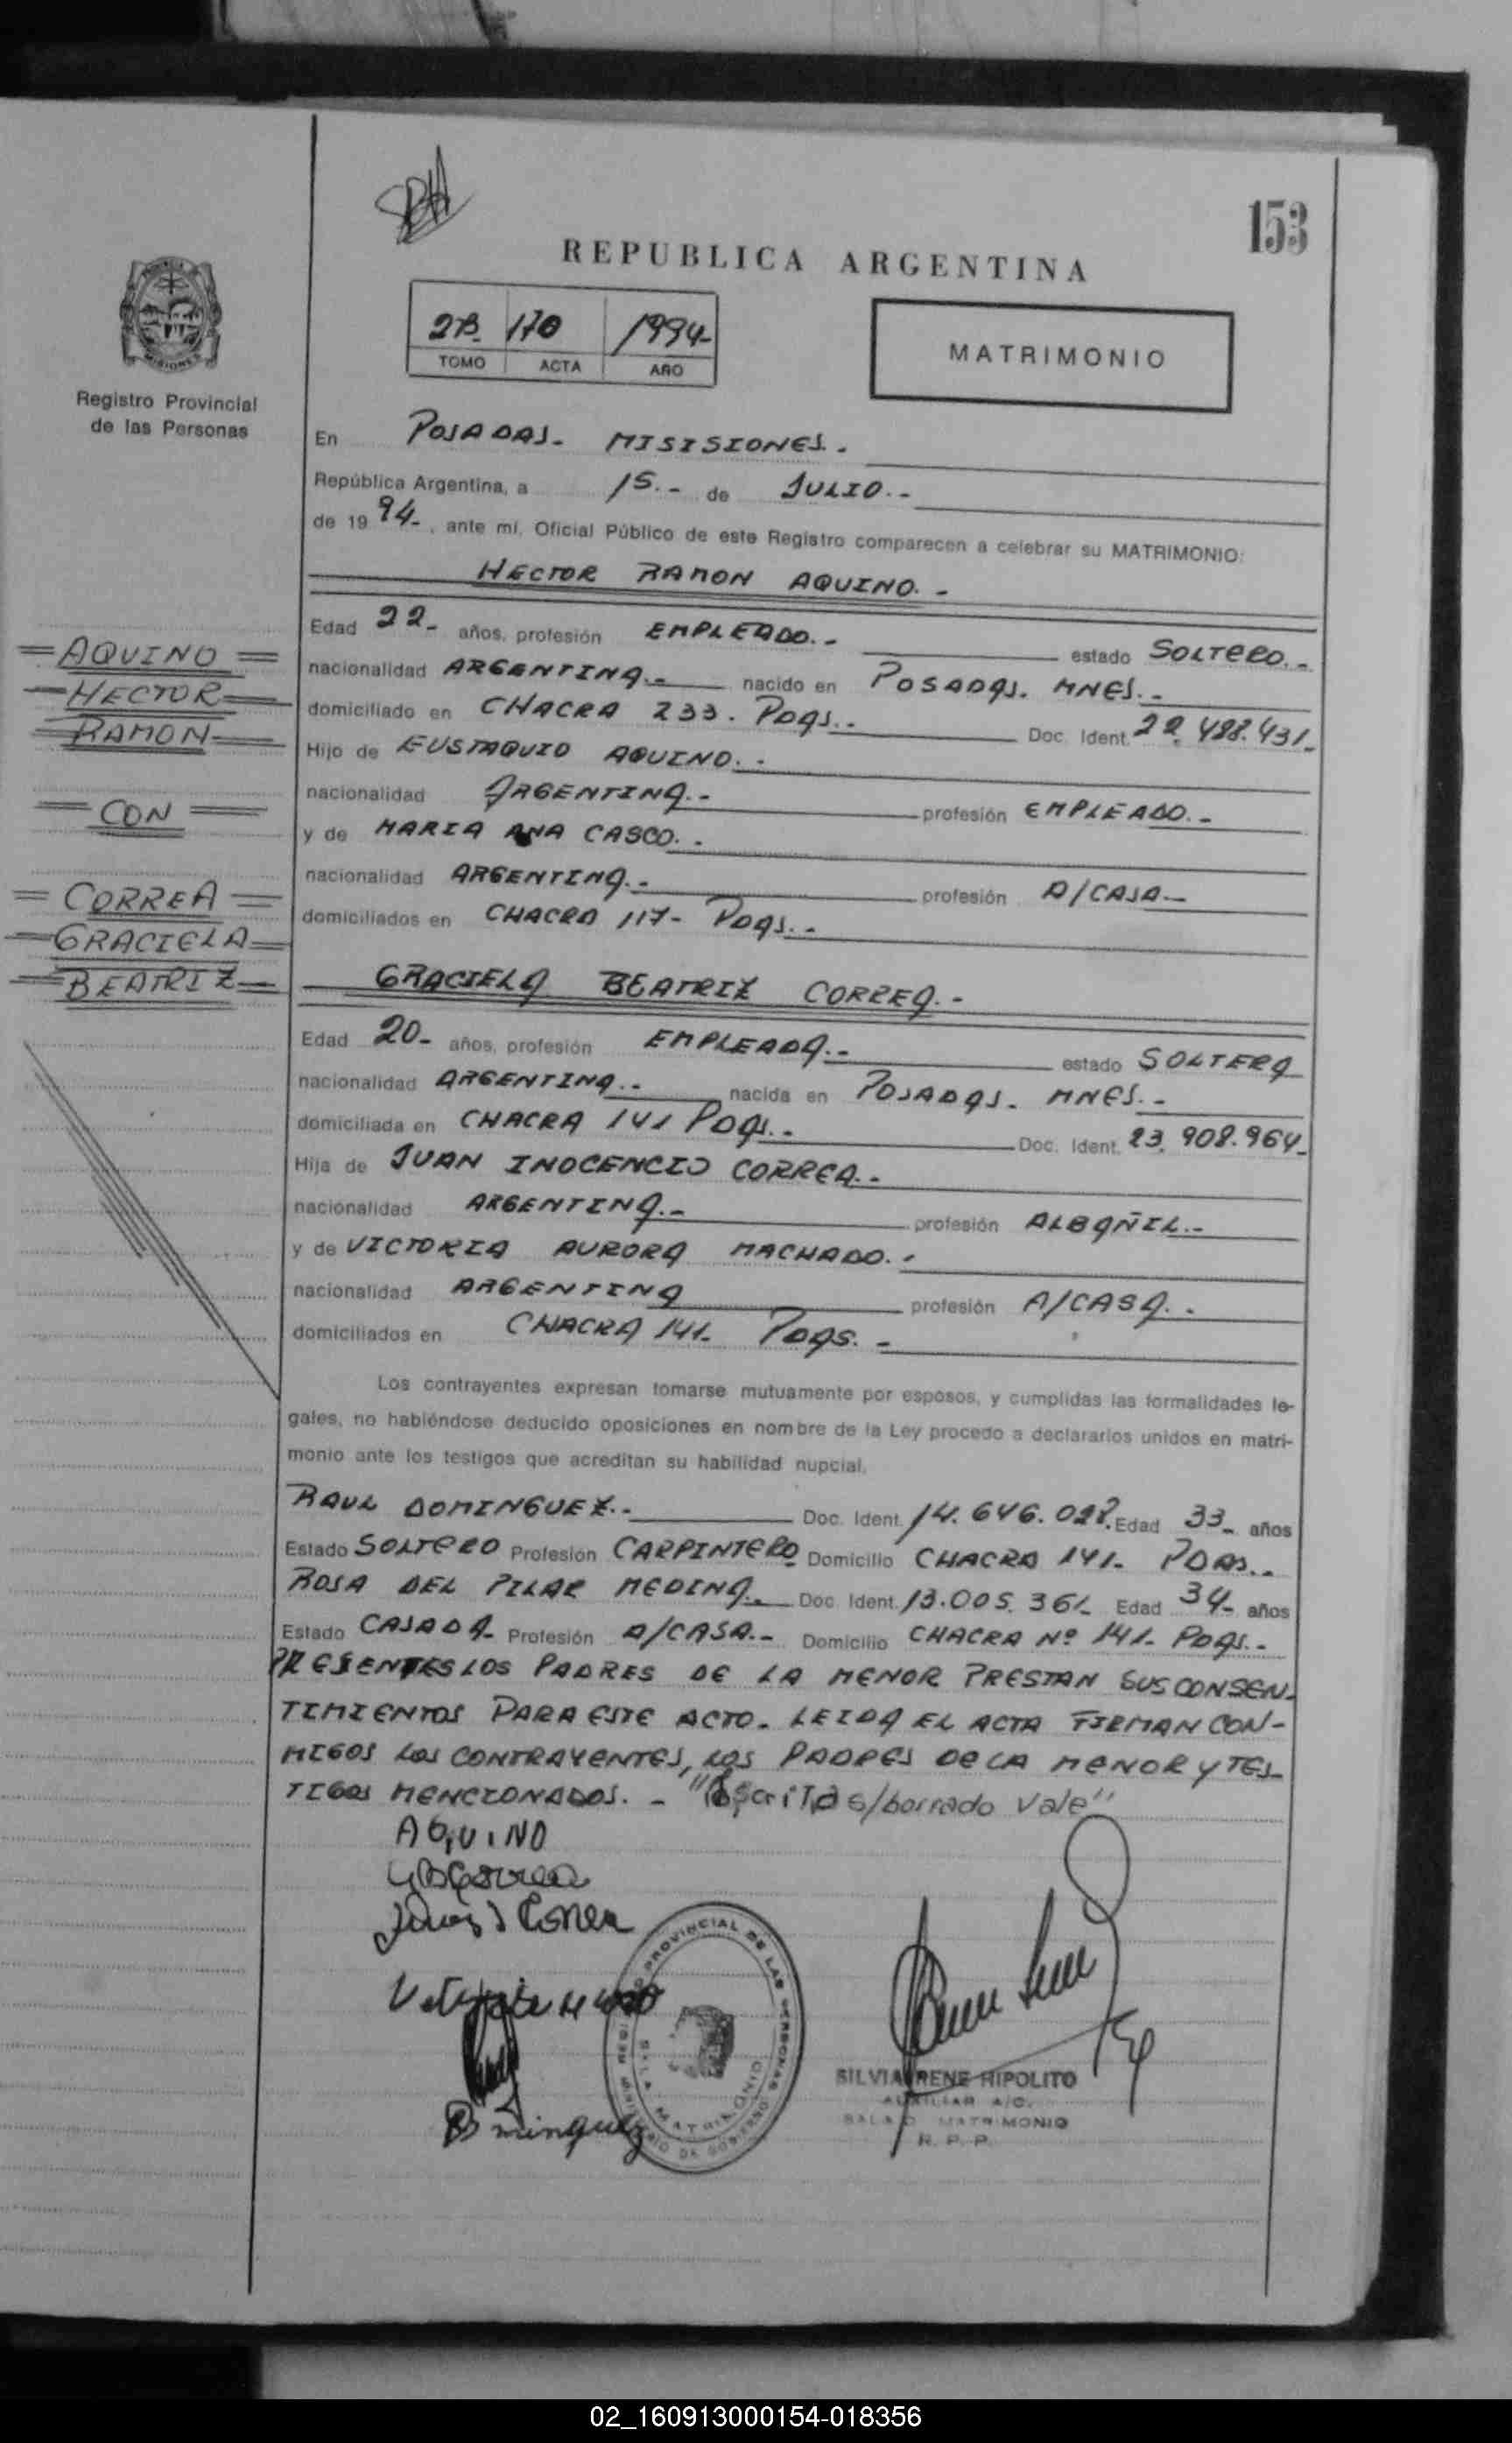 153
REPUBLICA ARGENTINA
2B. 170 1994-
TOMO ACTA AÑO
MATRIMONIO
MISIONES
Registro Provincial
de las Personas
En POSADAS.- MISISIONES.-
República Argentina, a 15.- de JULIO.-
de 19 94-, ante mí, Oficial Público de este Registro comparecen a celebrar su MATRIMONIO:
HECTOR RAMON AQUINO.-
Edad 22- años, profesión EMPLEADO.- estado SOLTERO.-
nacionalidad ARGENTINA.- nacido en POSADAS. MNES.-
domiciliado en CHACRA 233. PDAS.- Doc. Ident. 22.488.431.-
Hijo de EUSTAQUIO AQUINO.-
nacionalidad ARGENTINA.- profesión EMPLEADO.-
y de MARIA ANA CASCO.-
nacionalidad ARGENTINA.- profesión A/CASA.-
domiciliados en CHACRA 117- PDAS.-
= AQUINO =
= HECTOR =
= RAMON =
= CON =
= CORREA =
= GRACIELA =
= BEATRIZ =
GRACIELA BEATRIZ CORREA.-
Edad 20- años, profesión EMPLEADA.- estado SOLTERA
nacionalidad ARGENTINA.- nacida en POSADAS. MNES.-
domiciliada en CHACRA 141 PDAS.- Doc. Ident. 23.908.964-
Hija de JUAN INOCENCIO CORREA.-
nacionalidad ARGENTINA.- profesión ALBAÑIL.-
y de VICTORIA AURORA MACHADO.-
nacionalidad ARGENTINA profesión A/CASA.-
domiciliados en CHACRA 141- PDAS.-
Los contrayentes expresan tomarse mutuamente por esposos, y cumplidas las formalidades le-
gales, no habiéndose deducido oposiciones en nombre de la Ley procedo a declararlos unidos en matri-
monio ante los testigos que acreditan su habilidad nupcial.
RAUL DOMINGUEZ.- Doc. Ident. 14.646.028. Edad 33- años
Estado SOLTERO Profesión CARPINTERO Domicilio CHACRA 141- PDAS.-
ROSA DEL PILAR MEDINA.- Doc. Ident. 13.005.361- Edad 34- años
Estado CASADA- Profesión A/CASA.- Domicilio CHACRA Nº 141- PDAS.-
PRESENTES LOS PADRES DE LA MENOR PRESTAN SUS CONSEN-
TIMIENTOS PARA ESTE ACTO. LEIDA EL ACTA FIRMAN CON-
MIGOS LOS CONTRAYENTES, LOS PADRES DE LA MENOR Y TES-
TIGOS MENCIONADOS.- "Escrito s/borrado vale"
AQUINO
GBCorrea
Juan I Correa
Dominguez
PROVINCIAL DE LAS PERSONAS
SALA MATRIMONIO
MINISTERIO DE GOBIERNO
SILVIA IRENE HIPOLITO
AUXILIAR A/C.
SALA D. MATRIMONIO
R. P. P.
02_160913000154-018356